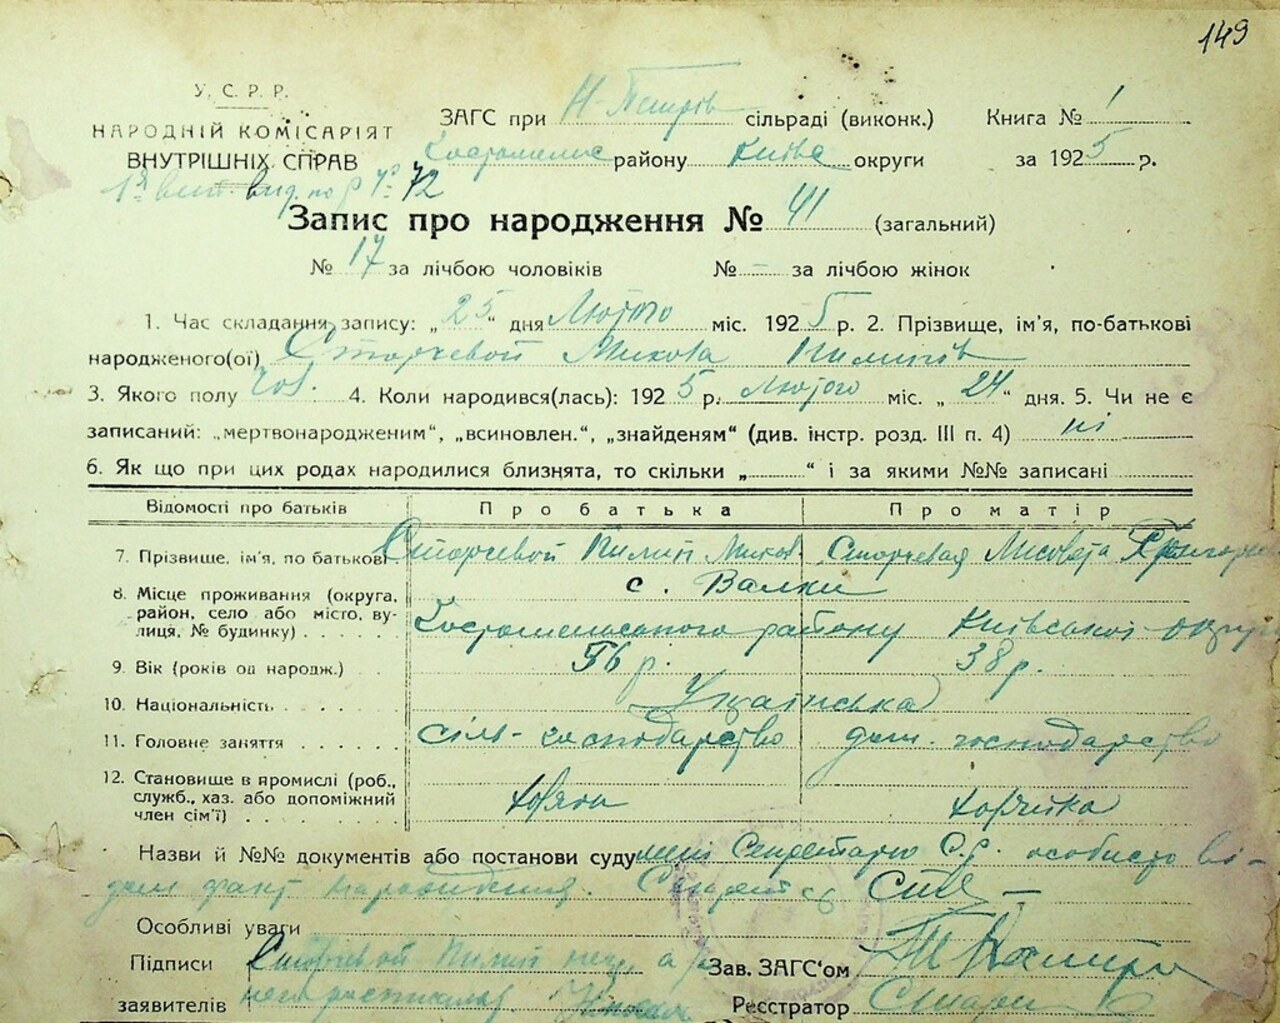 149
У. С. Р. Р.
НАРОДНІЙ КОМІСАРІЯТ
ВНУТРІШНІХ СПРАВ
72
ЗАГС при Н-Петрів сільраді (виконк.) Книга № 1
району Київс округи за 1925 р.
Запис про народження № 41 (загальний)
№ 17 за лічбою чоловіків № — за лічбою жінок
1. Час складання запису: „25“ дня Лютого міс. 1925 р. 2. Прізвище, ім'я, по-батькові
народженого(ої) Сторчевой Микола Пилипів
3. Якого полу чов. 4. Коли народився(лась): 1925 р. Лютого міс. „24“ дня. 5. Чи не є
записаний: „мертвонародженим“, „всиновлен.“, „знайденям“ (див. інстр. розд. III п. 4) ні
6. Як що при цих родах народилися близнята, то скільки „ “ і за якими №№ записані
Відомості про батьків Про батька Про матір
7. Прізвище, ім'я, по батькові Сторчевой Пилип Микол. Сторчевая Лисовета
8. Місце проживання (округа, район, село або місто, вулиця, № будинку) с. Валки
району Київської округи
9. Вік (років од народж.) 56 р. 38 р.
10. Національність Українська
11. Головне заняття сіль-господарство дом. господарство
12. Становище в промислі (роб., служб., хаз. або допоміжний член сім'ї)
Назви й №№ документів або постанови суду мені Секретарю С.р. особисто ві-
дом факт народження.
Особливі уваги
Підписи Сторчевой Пилип Зав. ЗАГС'ом
заявителів Реєстратор